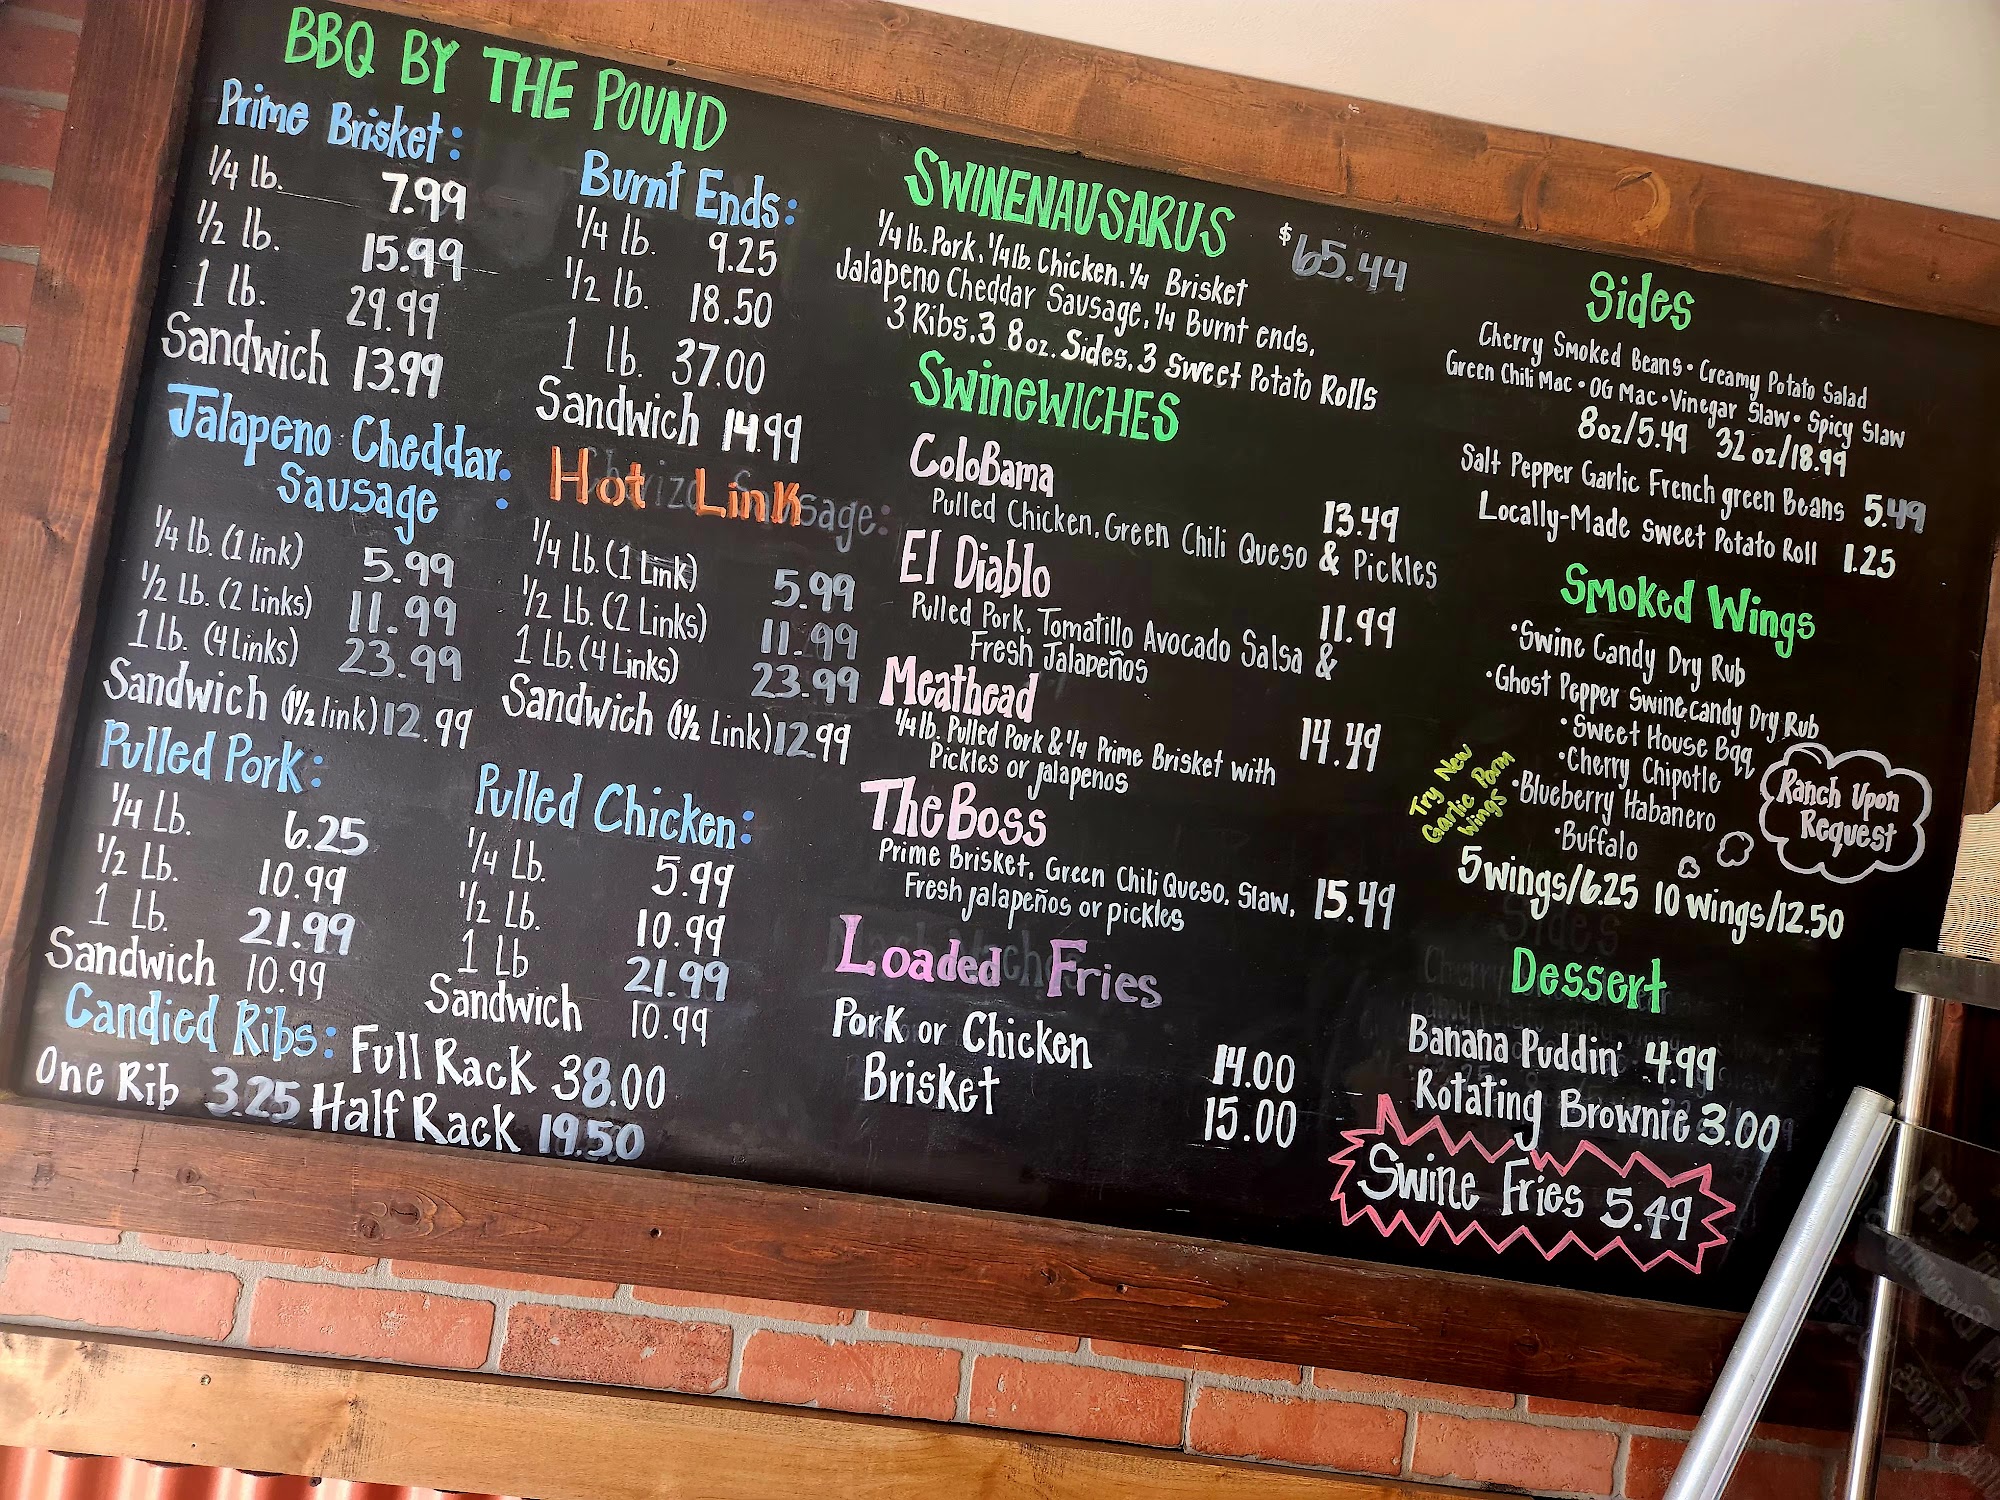 BBQ BY THE POUND
Prime Brisket:
1/4 lb. 7.99
1/2 lb. 15.99
1 lb. 29.99
Sandwich 13.99
Burnt Ends:
1/4 lb. 9.25
1/2 lb. 18.50
1 lb. 37.00
Sandwich 14.99
Jalapeno Cheddar
Sausage :
1/4 lb. (1 link) 5.99
1/2 Lb. (2 Links) 11.99
1 Lb. (4 Links) 23.99
Sandwich (1 1/2 link) 12.99
Hot Link
1/4 Lb. (1 Link) 5.99
1/2 Lb. (2 Links) 11.99
1 Lb. (4 Links) 23.99
Sandwich (1 1/2 Link) 12.99
Pulled Pork:
1/4 Lb. 6.25
1/2 Lb. 10.99
1 Lb. 21.99
Sandwich 10.99
Pulled Chicken:
1/4 Lb. 5.99
1/2 Lb. 10.99
1 Lb 21.99
Sandwich 10.99
Candied Ribs: Full Rack 38.00
One Rib 3.25 Half Rack 19.50
SWINENAUSARUS $65.44
1/4 lb. Pork, 1/4 lb. Chicken, 1/4 Brisket
Jalapeno Cheddar Sausage, 1/4 Burnt ends,
3 Ribs, 3 8oz. Sides, 3 Sweet Potato Rolls
SWINEWICHES
ColoBama 13.49
Pulled Chicken, Green Chili Queso & Pickles
El Diablo 11.99
Pulled Pork, Tomatillo Avocado Salsa &
Fresh Jalapeños
Meathead 14.49
1/4 lb. Pulled Pork & 1/4 Prime Brisket with
Pickles or jalapenos
The Boss
Prime Brisket, Green Chili Queso, Slaw, 15.49
Fresh jalapeños or pickles
Loaded Fries
Pork or Chicken 14.00
Brisket 15.00
Sides
Cherry Smoked Beans • Creamy Potato Salad
Green Chili Mac • OG Mac • Vinegar Slaw • Spicy Slaw
8oz/5.49 32oz/18.99
Salt Pepper Garlic French green Beans 5.49
Locally-Made Sweet Potato Roll 1.25
Smoked Wings
•Swine Candy Dry Rub
•Ghost Pepper Swinecandy Dry Rub
•Sweet House Bqq
•Cherry Chipotle
•Blueberry Habanero
•Buffalo
Try New
Garlic Parm
Wings
Ranch Upon
Request
5wings/6.25 10 wings/12.50
Dessert
Banana Puddin' 4.99
Rotating Brownie 3.00
Swine Fries 5.49